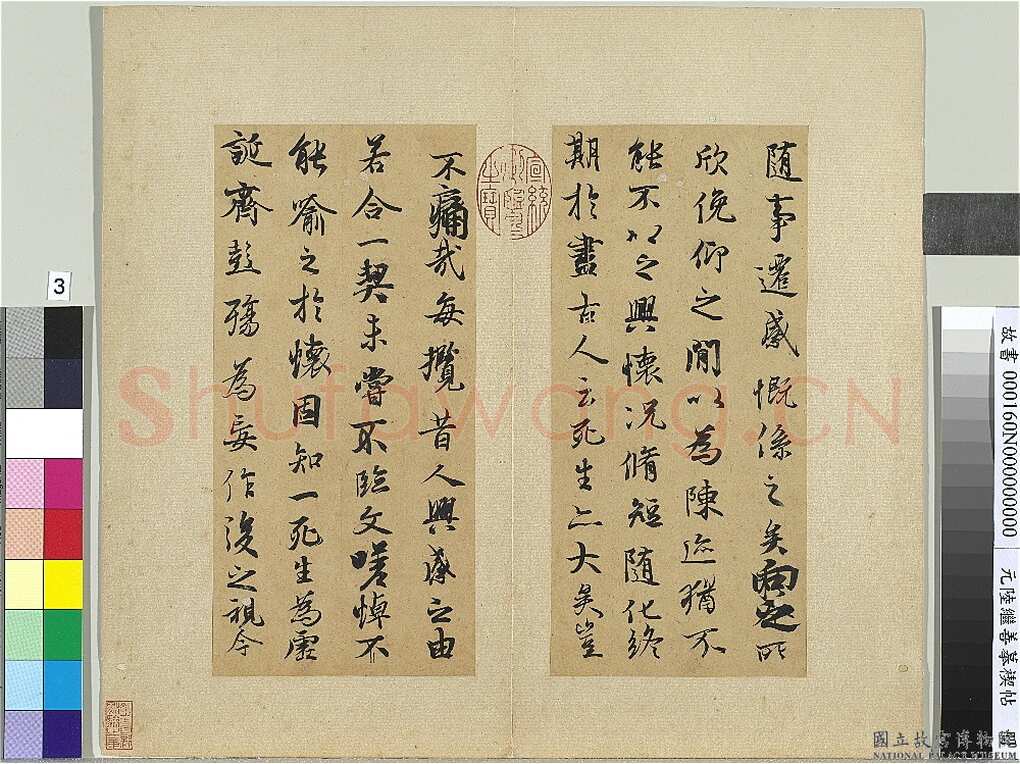 隨事遷感慨係之矣向之所
欣俛仰之閒以為陳迹猶不
能不以之興懷況脩短隨化終
期於盡古人云死生亦大矣豈
宣統御覽之寶
不痛哉每攬昔人興感之由
若合一契未嘗不臨文嗟悼不
能喻之於懷固知一死生為虛
誕齊彭殤為妄作後之視今
3
Shufawang.CN
故書 000160N000000000
元陸繼善摹禊帖
國立故宮博物院
NATIONAL PALACE MUSEUM